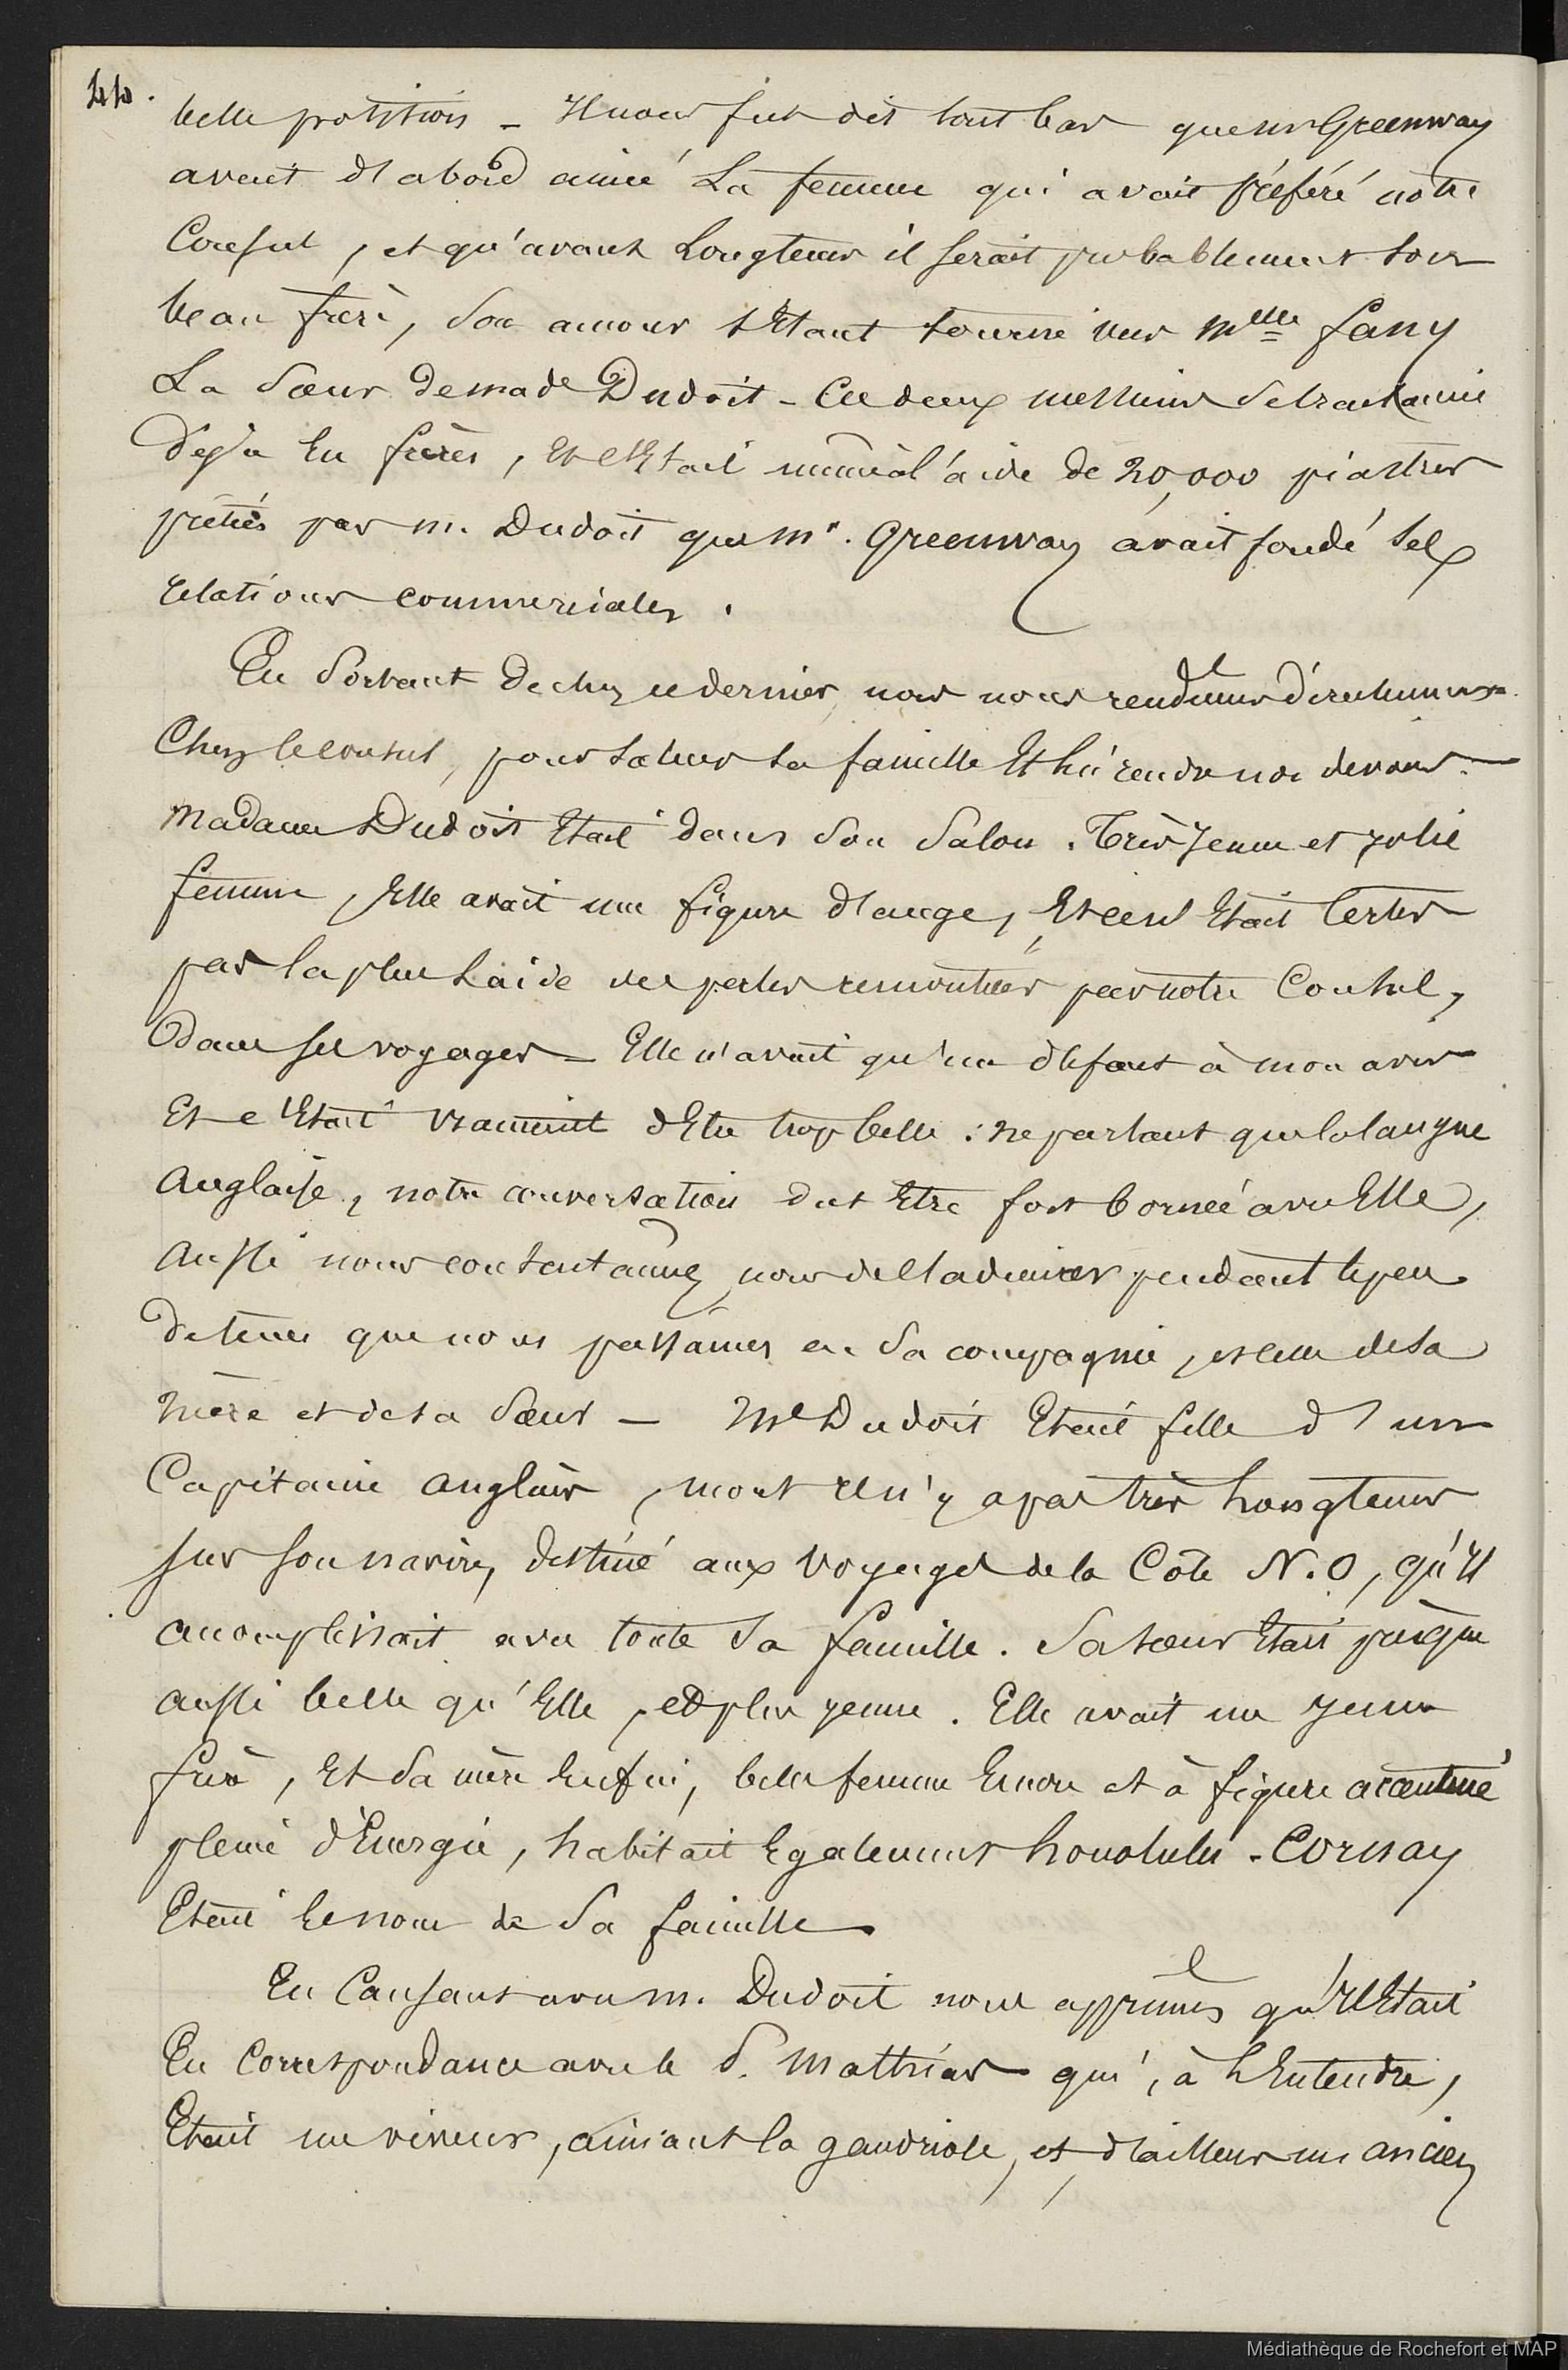 44.
belle position - Il nous fut dit tout bas que mr Greenway
avait d'abord aimé La femme qui avait préféré notre
Consul, et qu'avant Longtems il serait probablement son
beau frère, son amour s'Etant tourné vers Melle fany
La Sœur de made Dudoit - Ces deux messieurs se traitaient
déja En frères, Et c'Etait même à l'aide de 20,000 piastres
prêtés par m. Dudoit que mr. Greenway avait fondé ses
relations commerciales.
En Sortant de chez ce dernier, nous nous rendîmes directement
Chez le consul, pour saluer sa famille Et lui rendre nos devoirs.
Madame Dudoit Etait dans Son Salon. Très Jeune et jolie
femme, Elle avait une figure d'ange, Et ce n'Etait certes
pas la plus Laide des perles rencontrées par notre Consul,
Dans ses voyages - Elle n'avait qu'un défaut à mon avis
Et c'Etait vraiment d'Etre trop belle : ne parlant que la langue
Anglaise, notre conversation dut Etre fort bornée avec Elle,
Aussi nous contentames nous de l'admirer pendant le peu
de tems que nous passâmes en Sa compagnie, et celle de sa
mère et de sa Sœur - Me Dudoit Etait fille d'un
Capitaine anglais, mort Il n'y a pas très Longtems
sur son navire, destiné aux voyages de la Côte N.O, qu'Il
accomplissait avec toute Sa famille. Sa sœur Etait presque
aussi belle qu'Elle, et plus jeune. Elle avait un jeune
frère, Et Sa mère Enfin, belle femme Encore et à figure accentuée
pleine d'Energie, habitait Egalement honolulu. Cornay
Etait Le nom de Sa famille
En Causant avec m. Dudoit nous apprîmes qu'Il Etait
En Correspondance avec le S. Matthias qui, à L'Entendre,
Etait un viveur, aimant la gaudriole, et d'ailleurs un ancien
Médiathèque de Rochefort et MAP